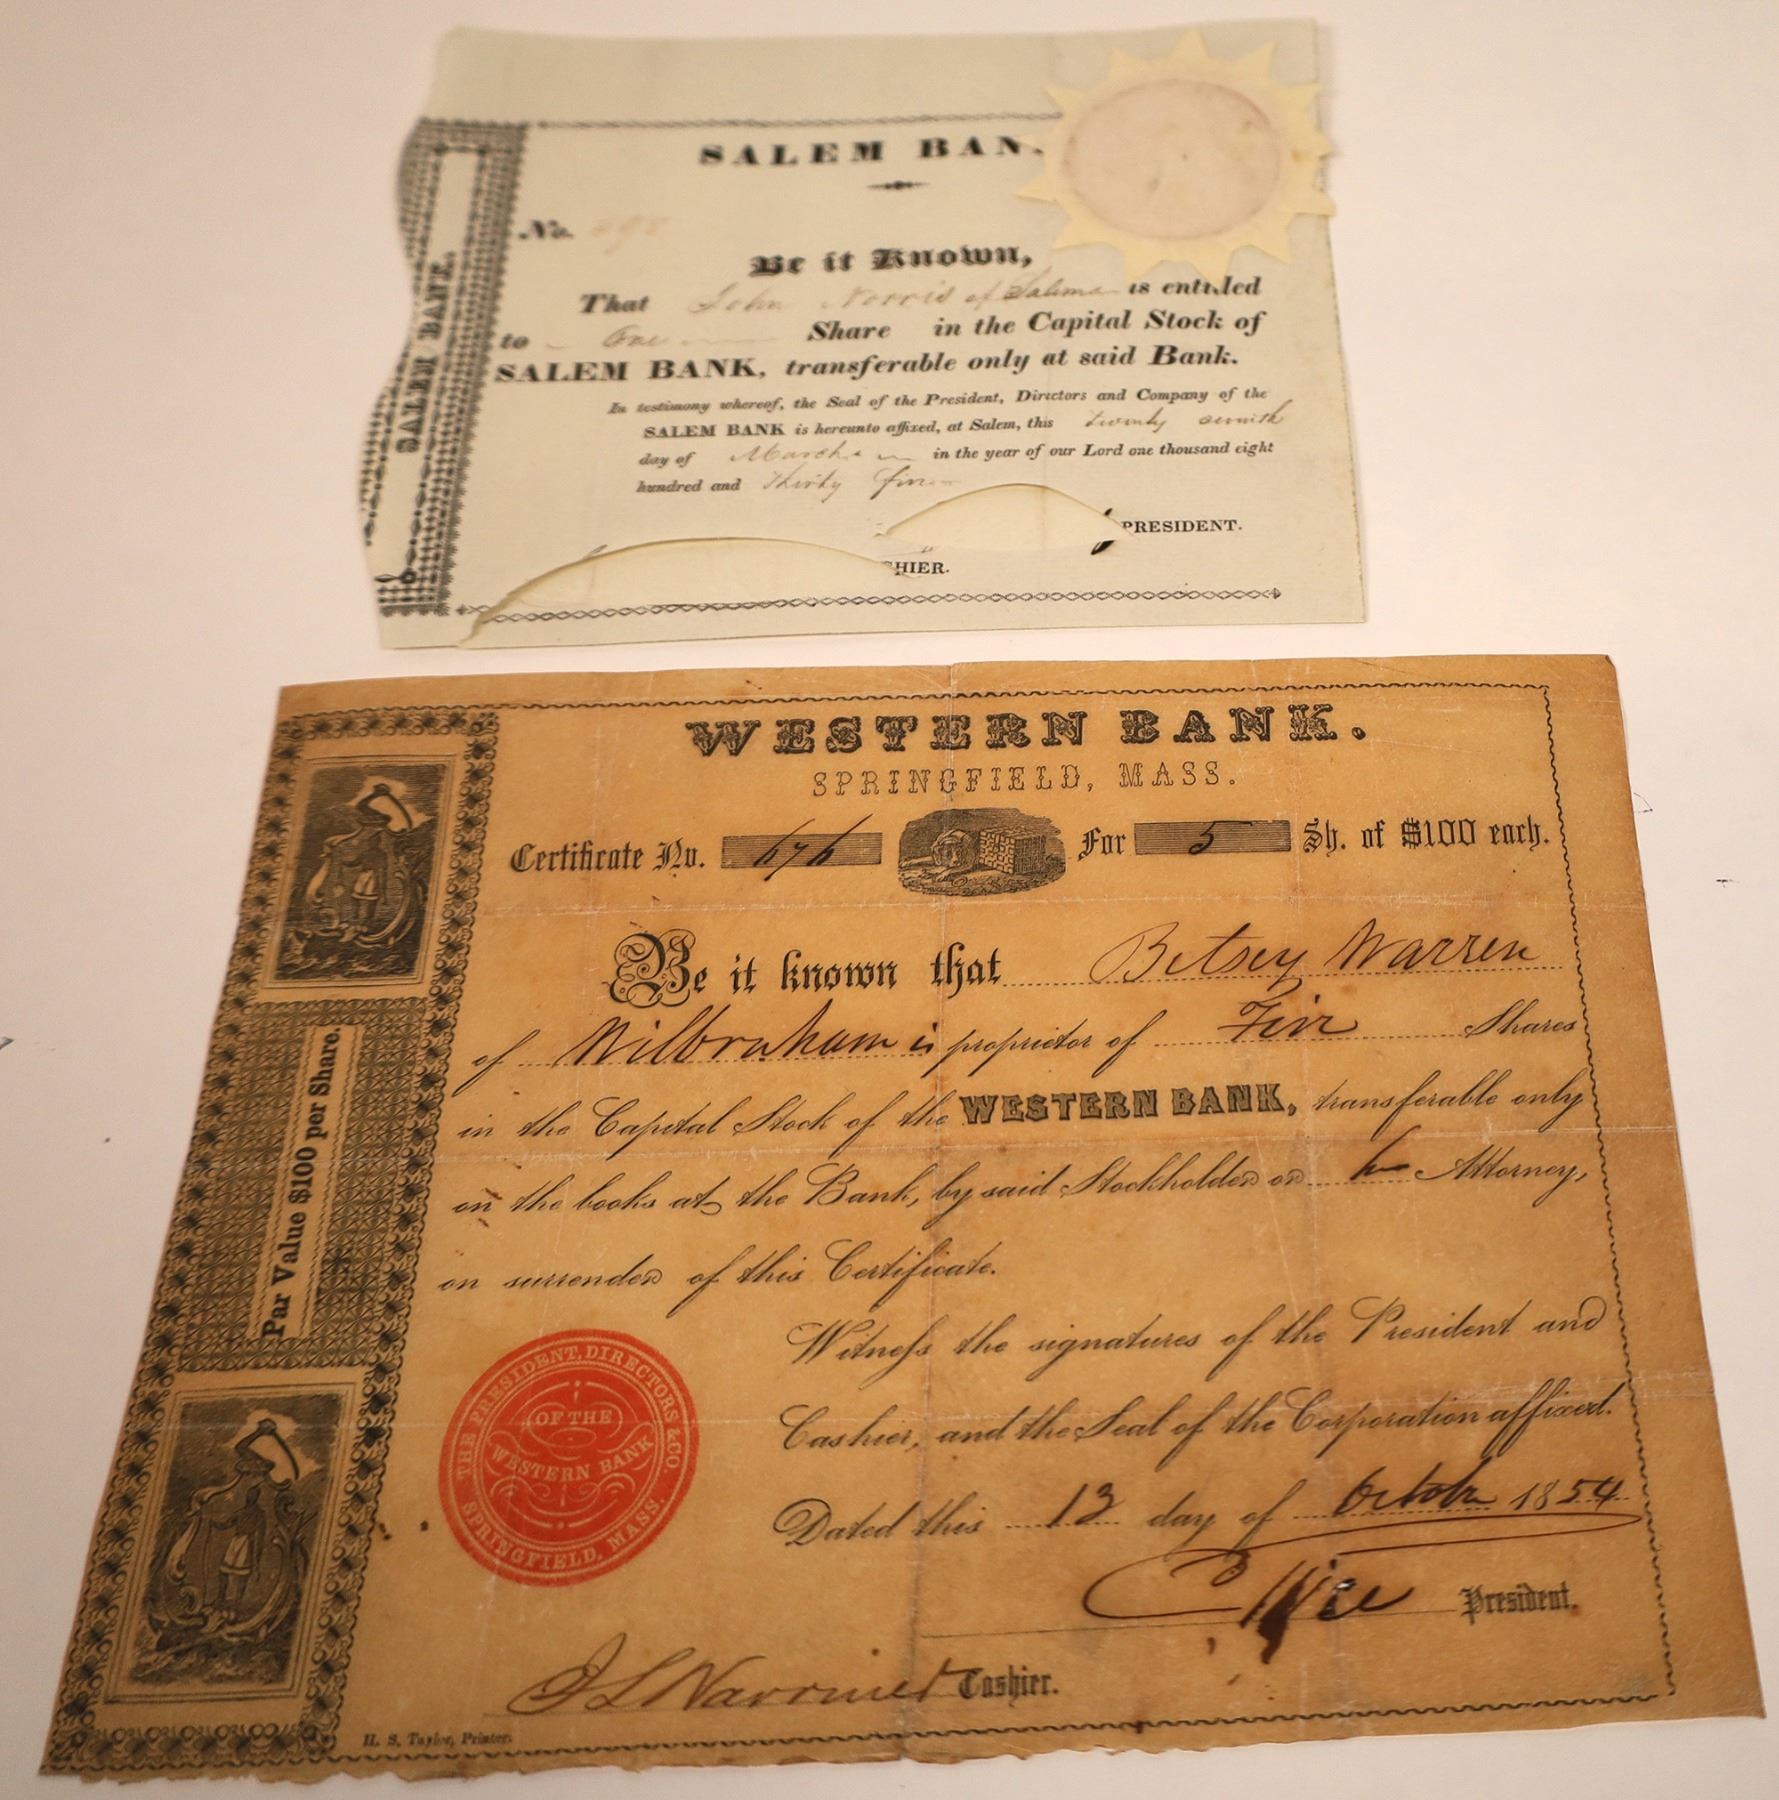 SALEM BAN
No.
Be it Known,
That John Norris of Salem is entitled
to One Share in the Capital Stock of
SALEM BANK, transferable only at said Bank.
In testimony whereof, the Seal of the President, Directors and Company of the
SALEM BANK is hereunto affixed, at Salem, this twenty
day of March in the year of our Lord one thousand eight
hundred and thirty five
PRESIDENT.
SHIER.
SALEM BANK.
WESTERN BANK.
SPRINGFIELD, MASS.
Certificate No. 676 For 5 Sh. of $100 each.
Be it known that Betsey Warren
of Wilbraham is proprietor of Five Shares
in the Capital Stock of the WESTERN BANK, transferable only
on the books at the Bank, by said Stockholder or Attorney,
on surrender of this Certificate.
Witness the signatures of the President and
Cashier, and the Seal of the Corporation affixed.
Dated this 13 day of October 1854
President.
Cashier.
Par Value $100 per Share.
THE PRESIDENT, DIRECTORS & CO.
OF THE
WESTERN BANK
SPRINGFIELD, MASS.
H. S. Taylor, Printer.